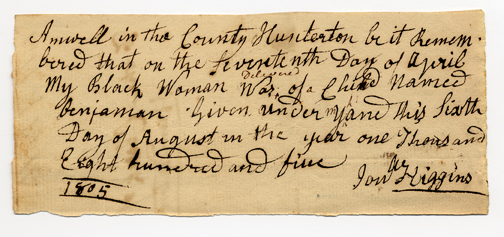 Amwell in the County Hunterton be it Remem-
bered that on the Sevententh Day of April
My Black Woman Was Delivered of a Child Named
Benjaman Given under my Hand This Sixth
Day of August in the year one Thousand
Eight hundred and five
1805
Higgins